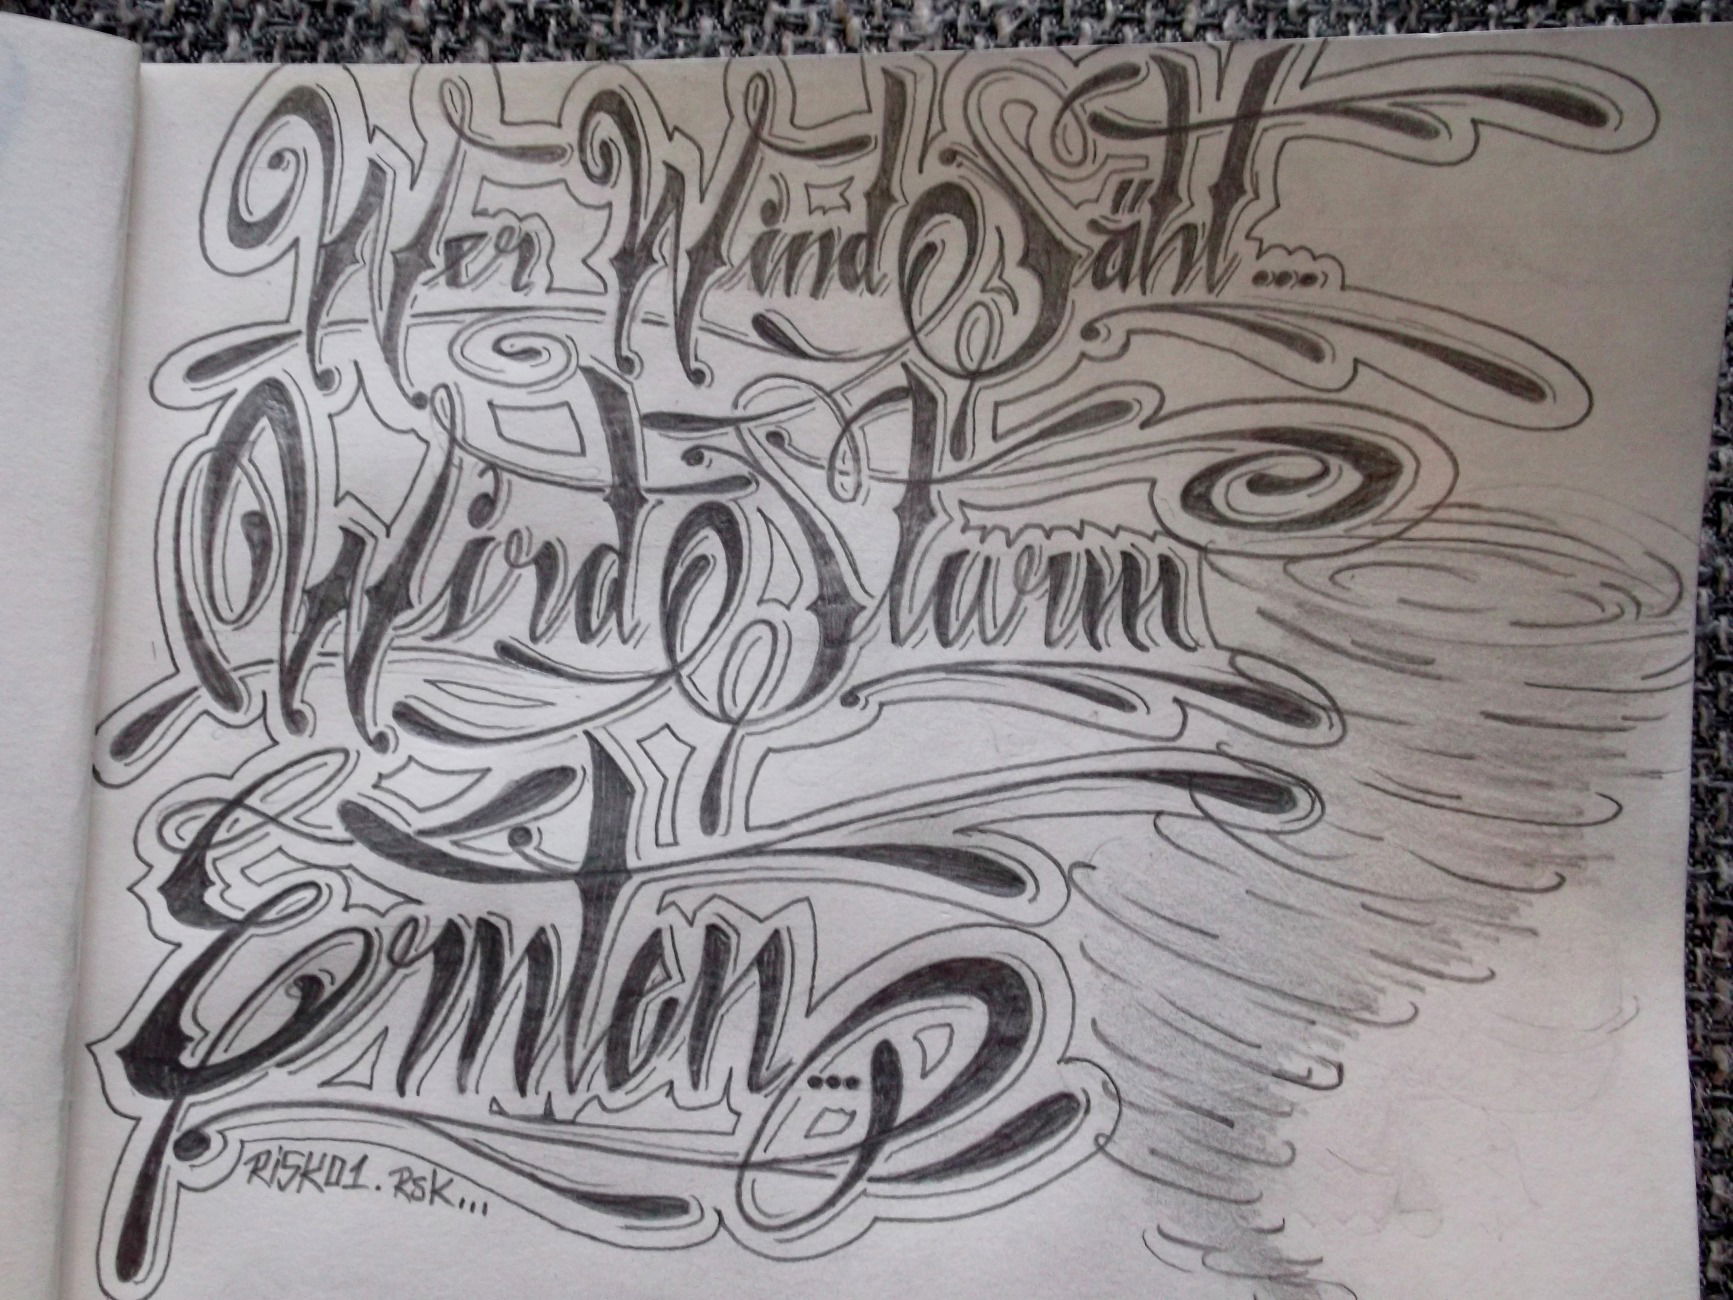 Wer Wind Säht...
Wird Sturm
Ernten...
RiSK01. RSK...